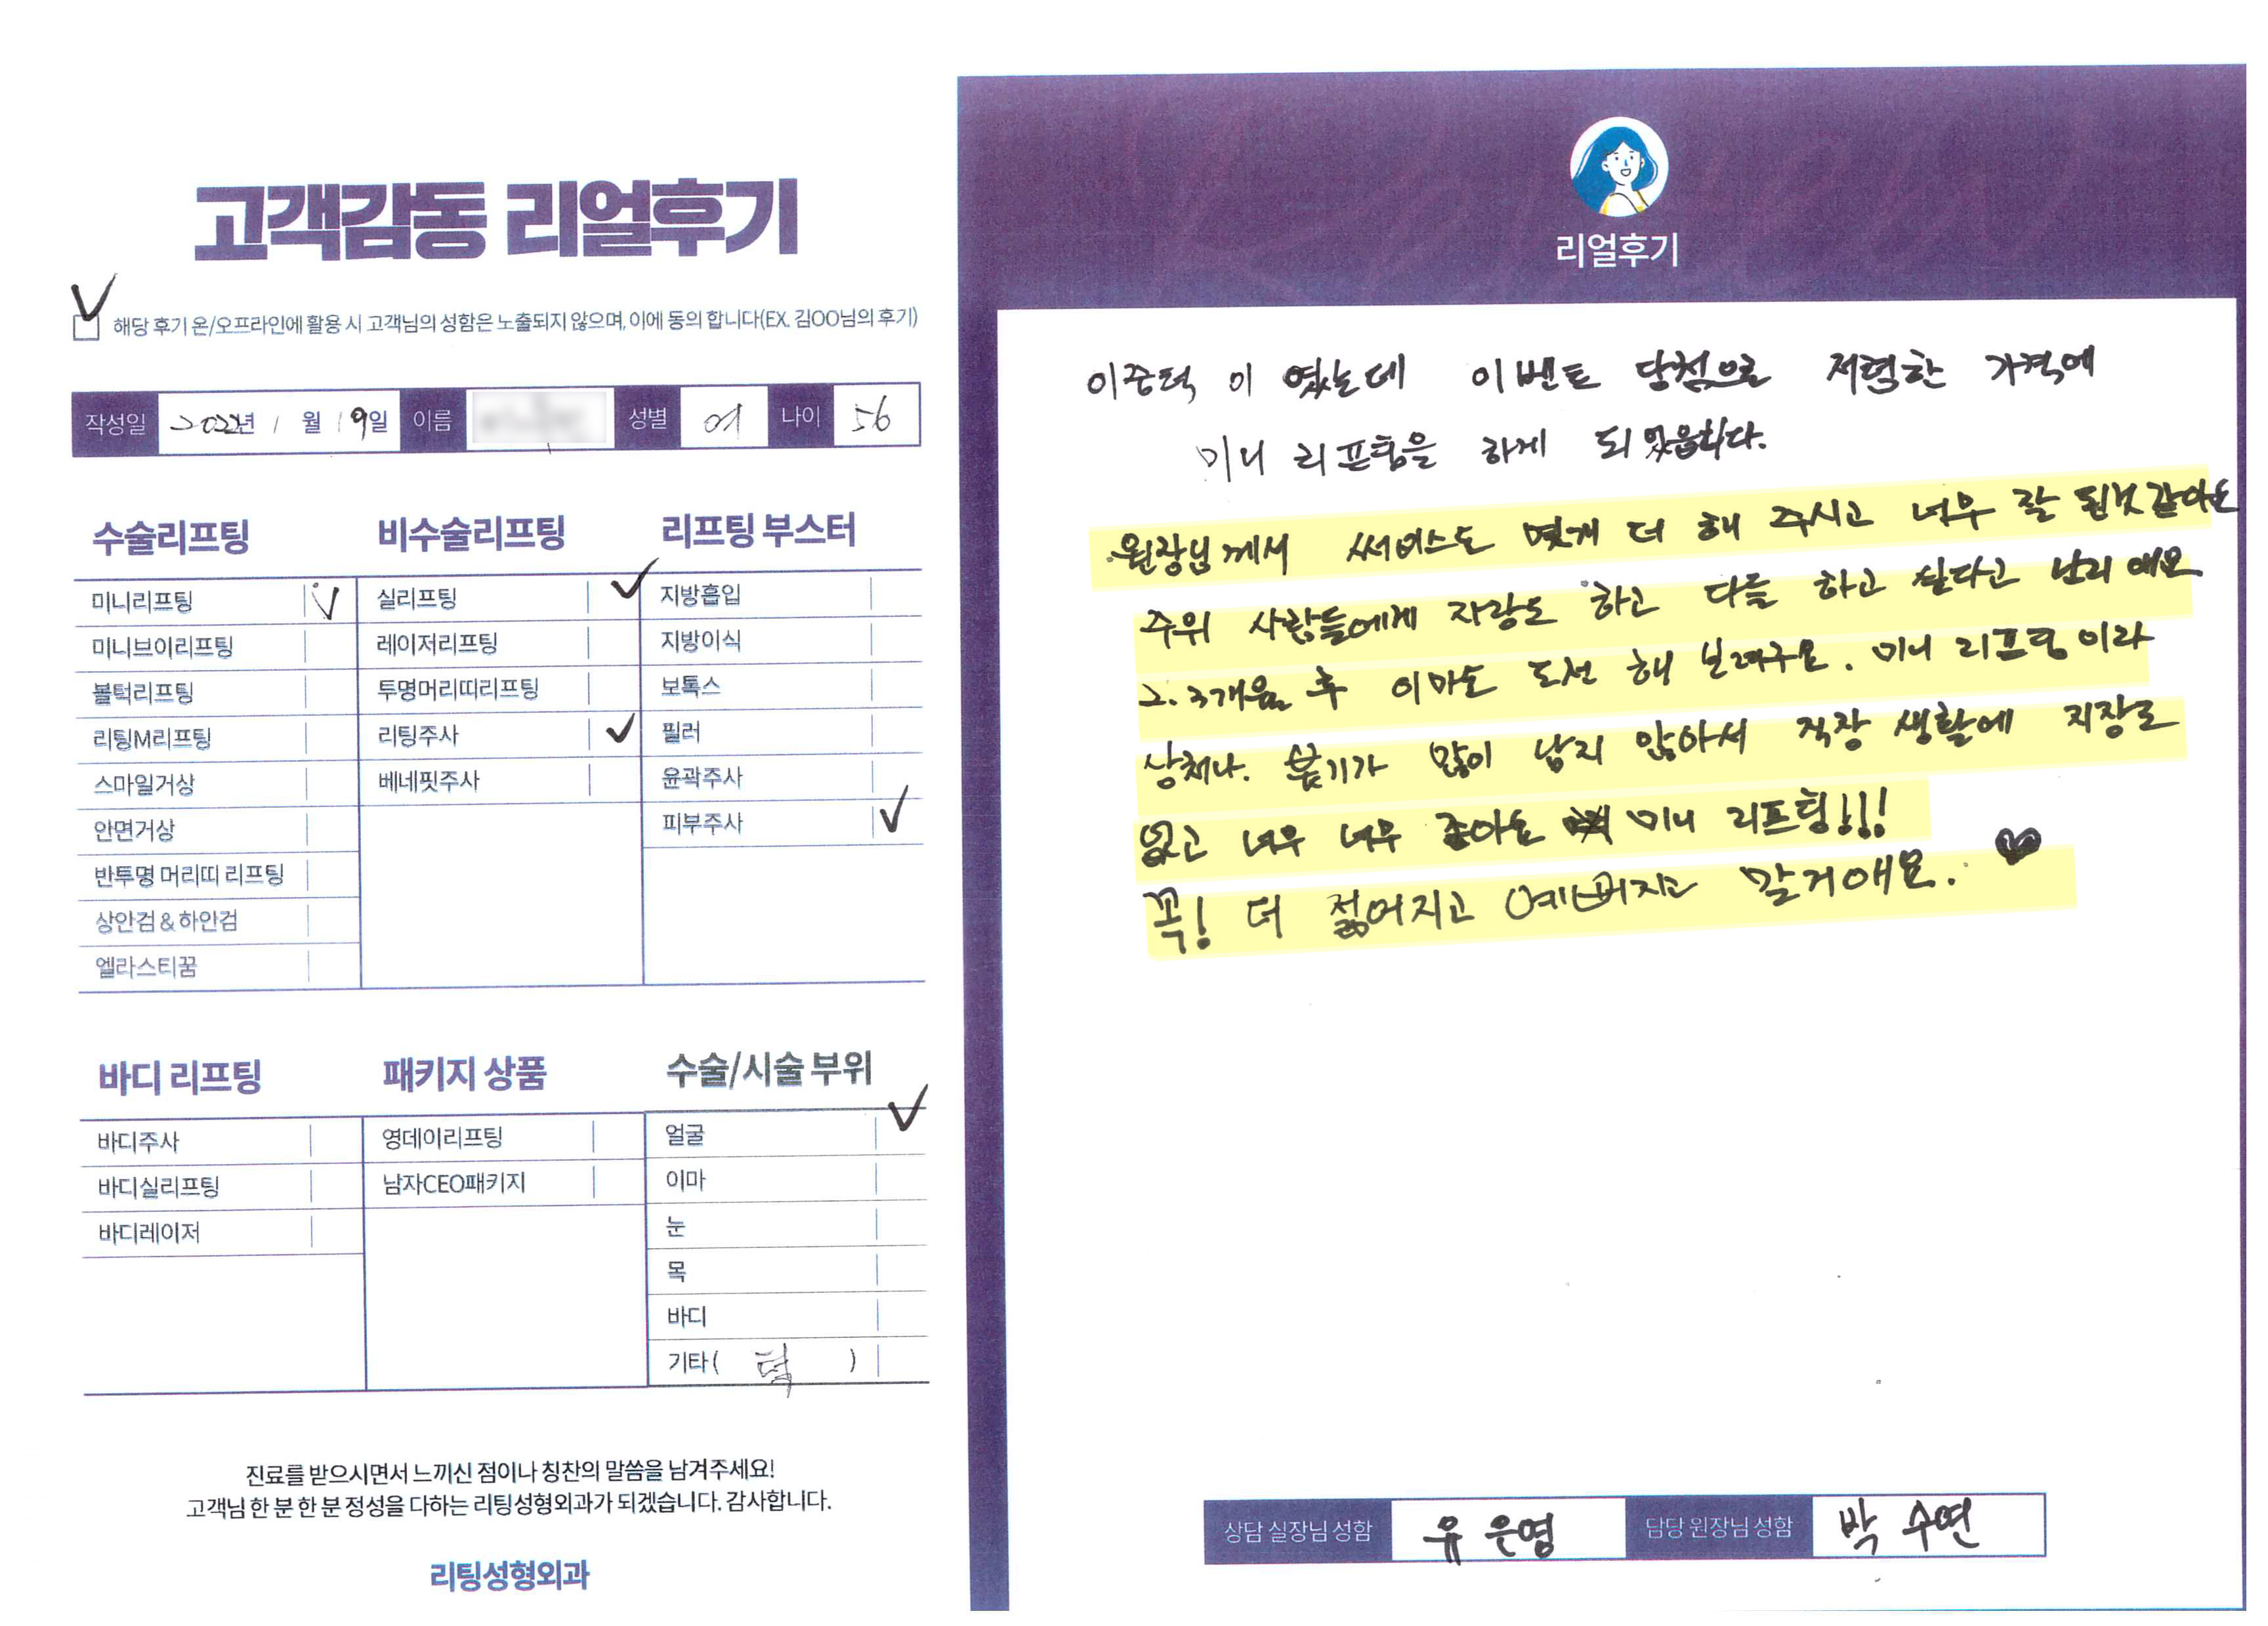 고객감동 리얼후기
해당 후기 온/오프라인에 활용 시 고객님의 성함은 노출되지 않으며, 이에 동의 합니다(EX. 김OO님의 후기)
작성일 2022년 1월 19일 이름 성별 여 나이 56
수술리프팅
미니리프팅
미니브이리프팅
볼턱리프팅
리팅M리프팅
스마일거상
안면거상
반투명 머리띠 리프팅
상안검 & 하안검
엘라스티꿈
비수술리프팅
실리프팅
레이저리프팅
투명머리띠리프팅
리팅주사
베네핏주사
리프팅 부스터
지방흡입
지방이식
보톡스
필러
윤곽주사
피부주사
바디 리프팅
바디주사
바디실리프팅
바디레이저
패키지 상품
영데이리프팅
남자CEO패키지
수술/시술 부위
얼굴
이마
눈
목
바디
기타( 턱 )
진료를 받으시면서 느끼신 점이나 칭찬의 말씀을 남겨주세요!
고객님 한 분 한 분 정성을 다하는 리팅성형외과가 되겠습니다. 감사합니다.
리팅성형외과
리얼후기
이중턱 이 였는데 이벤트 당첨으로 저렴한 가격에
미니 리프팅을 하게 되었읍니다.
원장님께서 써비스도 몇개 더 해 주시고 너무 잘 된것같아요
주위 사람들에게 자랑도 하고 다들 하고 싶다고 난리 애요
2.3개월 후 이마도 도전 해 보려구요. 미니 리프팅 이라
상처나. 붓기가 많이 남지 않아서 직장 생활에 지장도
없고 너무 너무 좋아요 미니 리프팅!!!
꼭! 더 젊어지고 예뻐지고 말거애요.
상담 실장님 성함 유 은영 담당 원장님 성함 박 수연